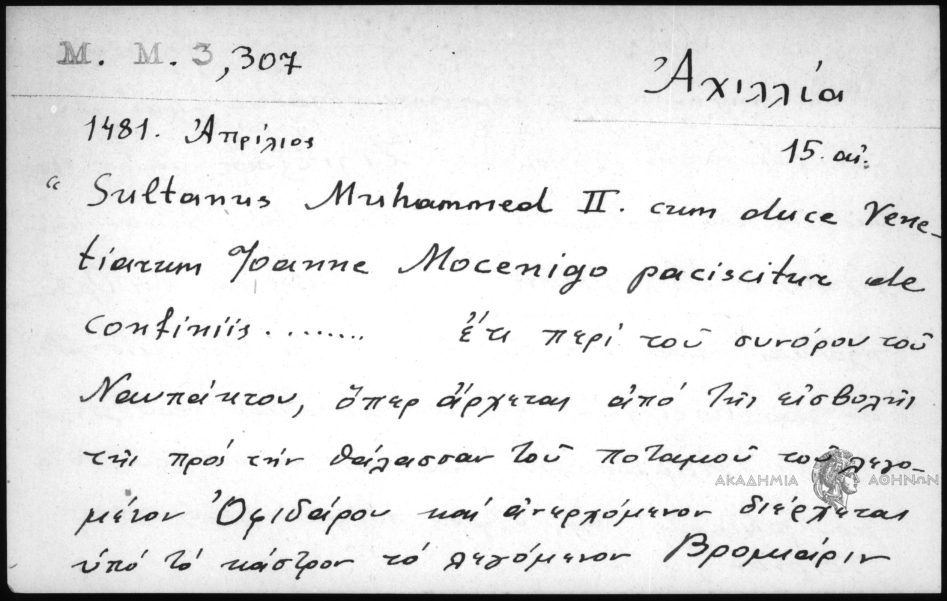 M. M. 3, 307
Ἀχιλλία
1481. Ἀπρίλιος
15. αἰ.
“ Sultanus Muhammed II. cum duce Vene-
tiarum Joanne Mocenigo paciscitur de
confiniis ........ ἔτι περί τοῦ συνόρου τοῦ
Ναυπάκτου, ὅπερ ἄρχεται ἀπό τῆς εἰσβολῆς
τῆς πρός τήν θάλασσαν τοῦ ποταμοῦ τοῦ λεγο-
ΑΚΑΔΗΜΙΑ ΑΘΗΝΩΝ
μένου Ὀφιδάρου καί ἀνερχόμενον διέρχεται
ὑπό τό κάστρον τό λεγόμενον Βρομκάριν